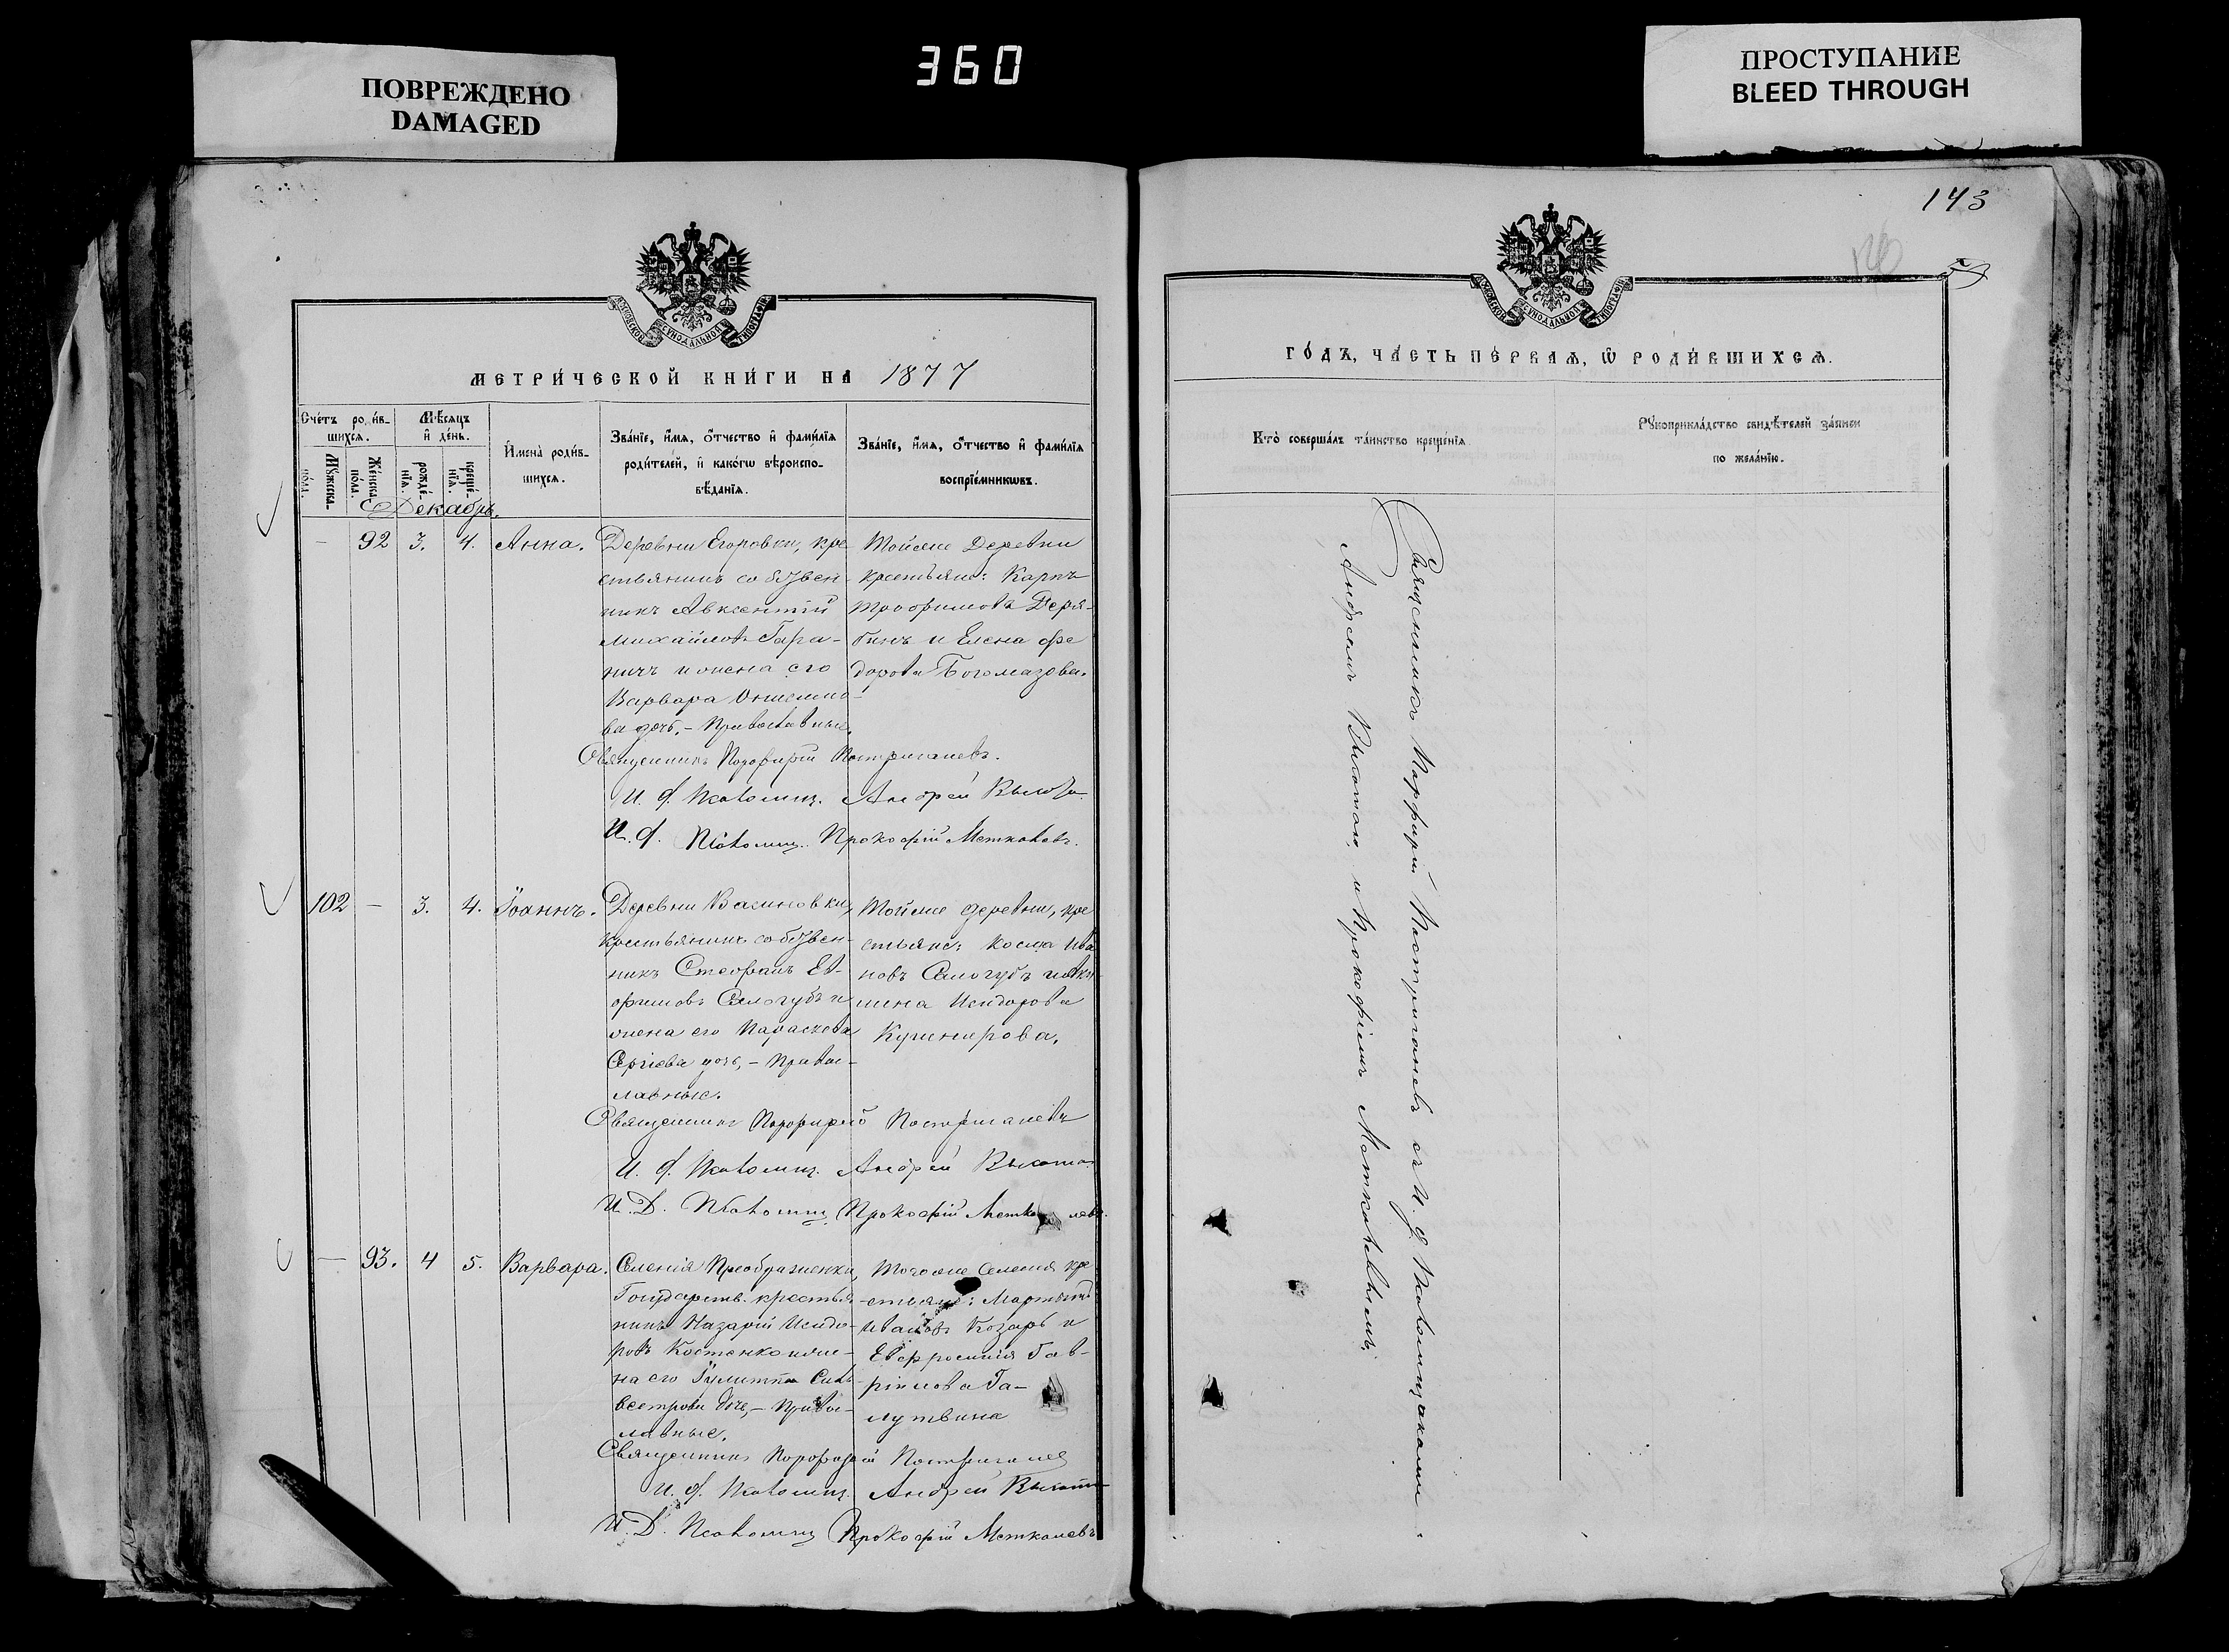 ПОВРЕЖДЕНО
DAMAGED
360
ПРОСТУПАНИЕ
BLEED THROUGH
143
МОСКОВСКОЙ СѴНОДАЛЬНОЙ ТИПОГРАФІИ
МЕТРИ́ЧЕСКОЙ КНИ́ГИ НА 1877
Сче́тъ роди́в-
шихсѧ.
Мꙋ́жеска
по́ла.
Же́нска
по́ла.
Мѣ́сѧцъ
и҆ де́нь.
рожде́-
нїѧ.
креще́-
нїѧ.
И҆мена̀ роди́в-
шихсѧ.
Зва́нїе, и҆́мѧ, ѻ҆́тчество и҆ фами́лїѧ
роди́телей, и҆ како́гѡ вѣроиспо-
вѣ́данїѧ.
Зва́нїе, и҆́мѧ, ѻ҆́тчество и҆ фами́лїѧ
воспрїе́мникѡвъ.
Декабрь.
— 92 3. 4. Анна.
Деревни Егоровки, кре
стьянинъ собствен-
никъ Авксентій
Михайловъ Гара-
ничъ и жена его
Варвара
ва дочь, – Православные.
Тойже Деревни
крестьяне: Карпъ
Трофимовъ Деря-
бинъ и Елена Фе
дорова Богомазова.
Священникъ Порфирій Постригановъ.
И. д. Псаломщ. Андрей Высота
И. д. Псаломщ. Прокофій Меткалевъ.
102 — 3. 4. Іоаннъ.
Деревни Василовки,
крестьянинъ собствен-
никъ Стефанъ Ев-
фимовъ Самогубъ и
жена его Параскева
Сергіева дочь, – Правос-
лавные.
Тойже деревни, кре
стьяне: Косма Ива
новъ Самогубъ и
Исидорова
Кушнерова.
Священникъ Порфирій Постригановъ
И. д. Псаломщ. Андрей Высота
И. Д. Псаломщ Прокофій Меткалевъ.
— 93. 4 5. Варвара.
Селенія Преображенки,
Государств. крестья
нинъ Назарій Исидо-
ровъ Костенко и же-
на его Іулитта Силь-
вестрова дочь, – Правос-
лавные.
Тогоже Селенія кре
стьяне: Мартинъ
Ивановъ Козарь и
Евфросинія Гав-
рілова Га-
лутвина
Священникъ Порфирій Постригановъ
И. д. Псаломщ. Андрей Высота
И. Д. Псаломщ Прокофій Меткалевъ
МОСКОВСКОЙ СѴНОДАЛЬНОЙ ТИПОГРАФІИ
ГО́ДЪ, ЧА́СТЬ ПЕ́РВАѦ, Ѽ РОДИ́ВШИХСѦ.
Кто̀ соверша́лъ та́инство креще́нїѧ.
Рꙋкоприкла́дство свидѣ́телей за́писи
по жела́нїю.
Священникъ Порфирій Постригановъ съ И. д. Псаломщиками
Андреемъ Высотою, и Прокофіемъ Меткалевымъ.